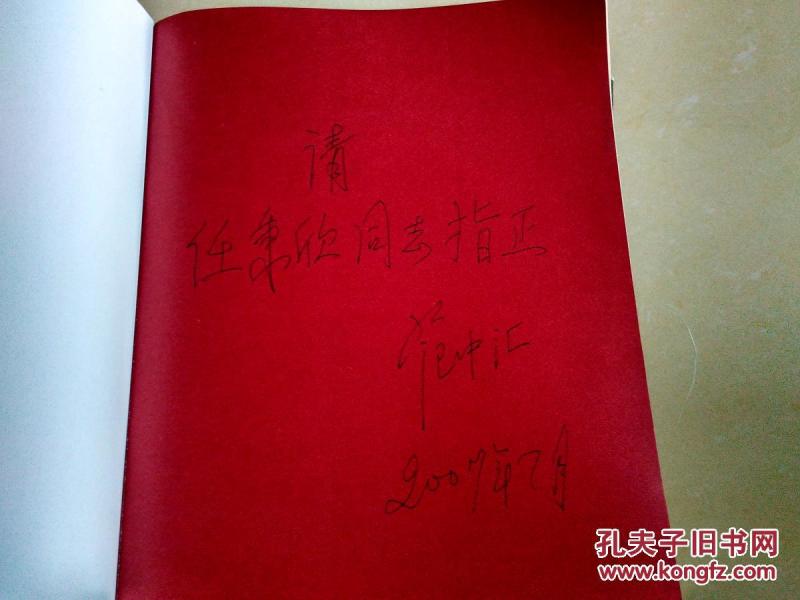 请
任秉欣同志指正
范中汇
2007年7月
孔夫子旧书网
www.kongfz.com